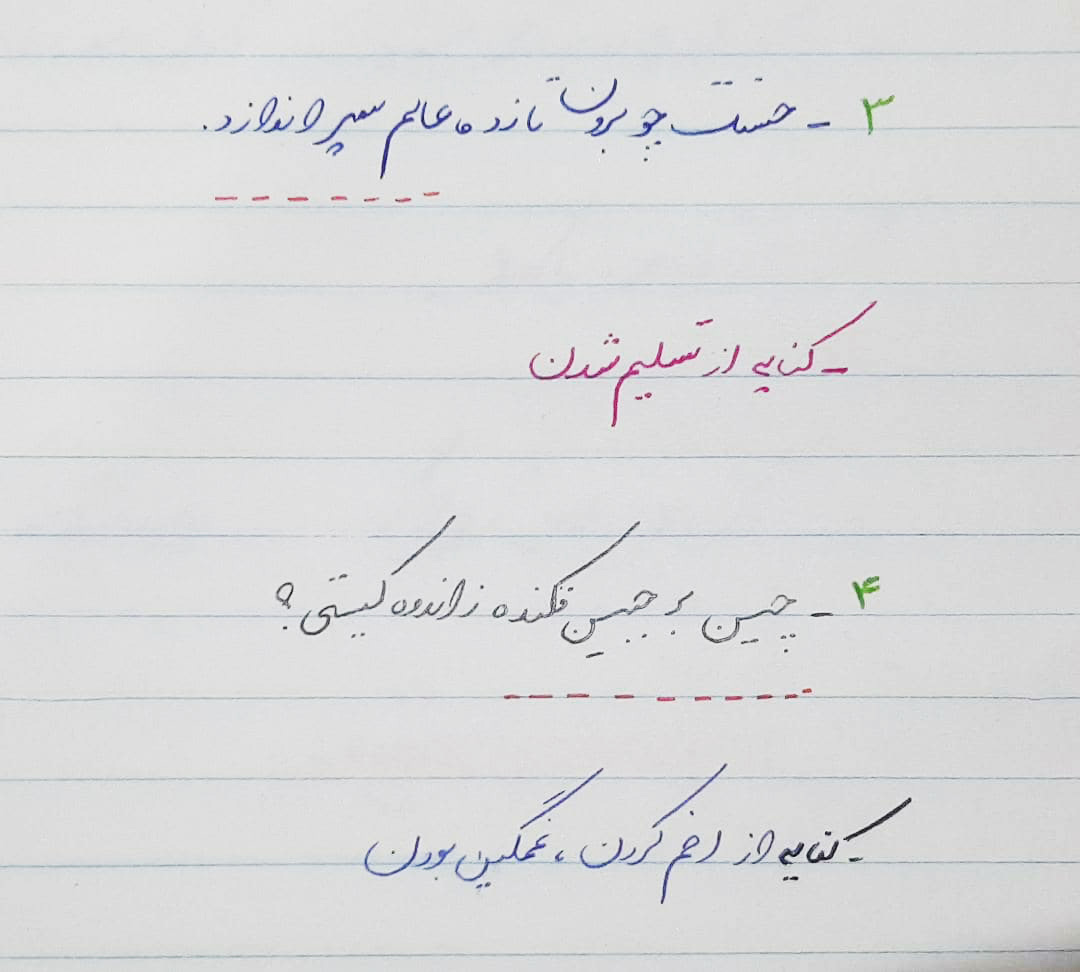 ۳ - حسنت چو برون تازد، عالم سپر اندازد.
- کنایه از تسلیم شدن
۴ - چین بر جبین فکنده ز اندوه کیستی؟
- کنایه از اخم کردن، غمگین بودن